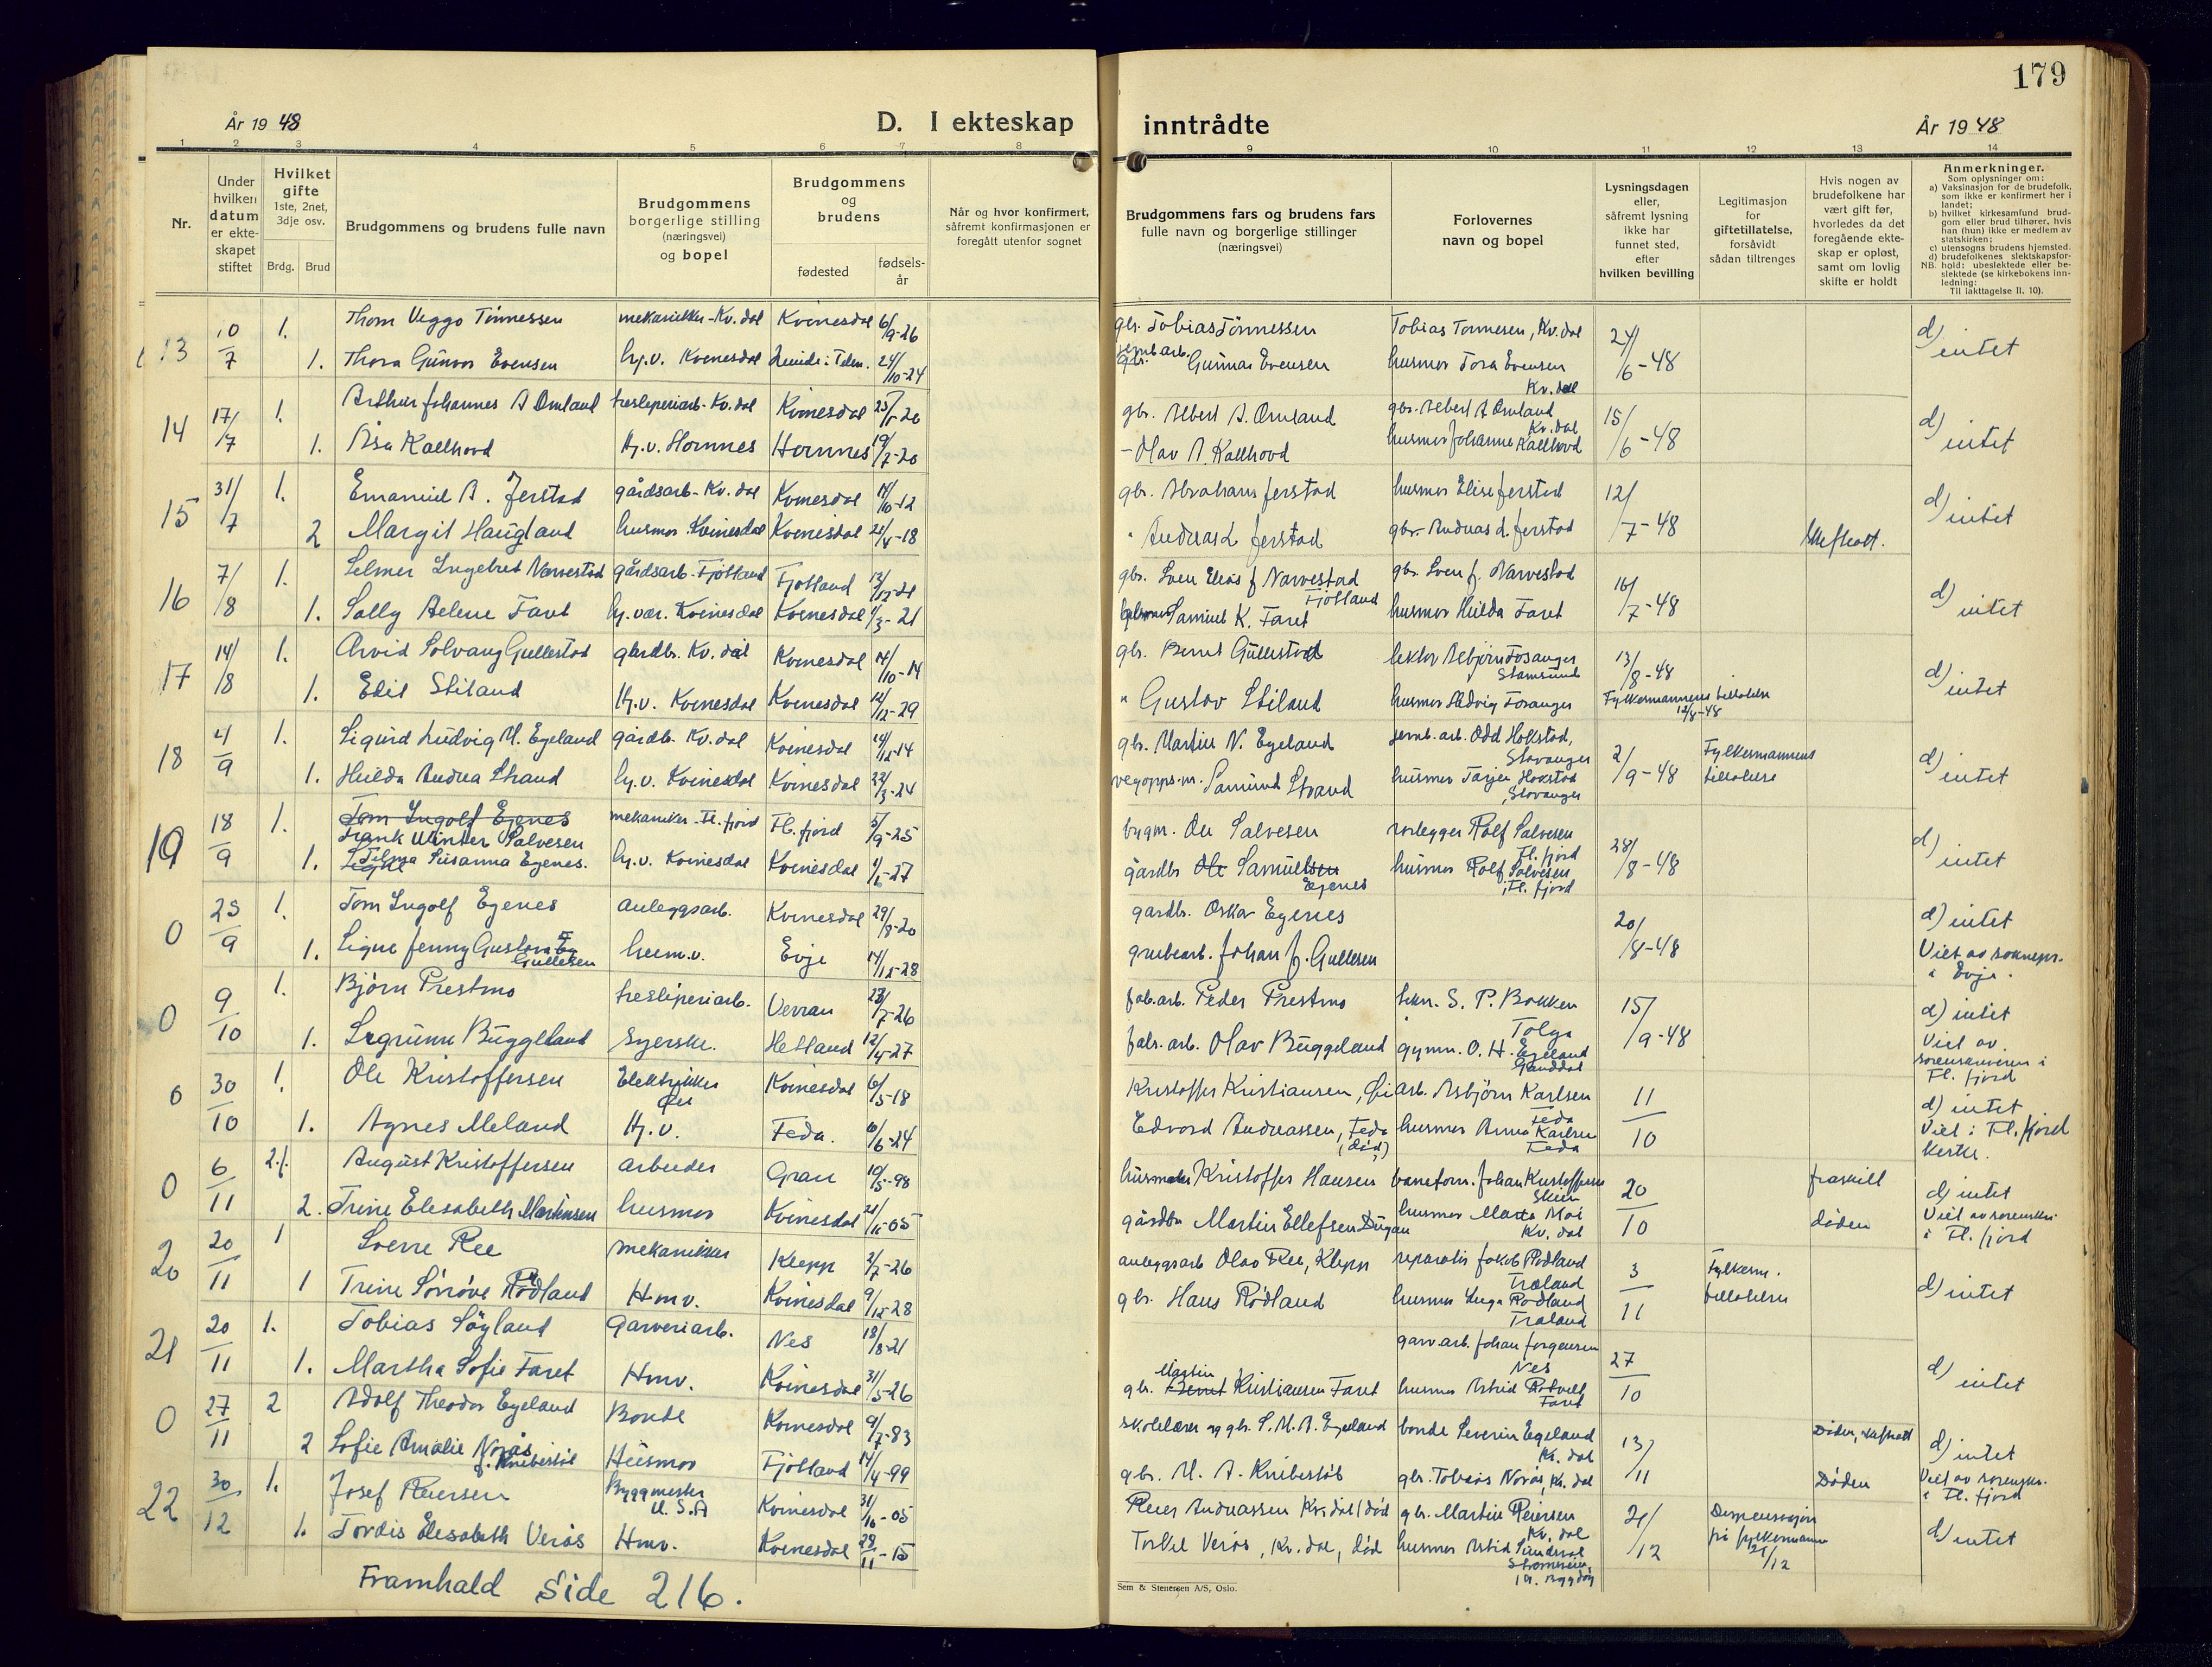 179
År 1948
D. I ekteskap inntrådte
År 1948
1 2 3 4 5 6 7 8 9 10 11 12 13 14
Nr.
Under hvilken datum er ekteskapet stiftet
Hvilket gifte 1ste, 2net, 3dje osv.
Brdg. Brud
Brudgommens og brudens fulle navn
Brudgommens borgerlige stilling (næringsvei) og bopel
Brudgommens og brudens
fødested
fødselsår
Når og hvor konfirmert, såfremt konfirmasjonen er foregått utenfor sognet
Brudgommens fars og brudens fars fulle navn og borgerlige stillinger (næringsvei)
Forlovernes navn og bopel
Lysningsdagen eller, såfremt lysning ikke har funnet sted, efter hvilken bevilling
Legitimasjon for giftetillatelse, forsåvidt sådan tiltrenges
Hvis nogen av brudefolkene har vært gift før, hvorledes da det foregående ekteskap er opløst, samt om lovlig skifte er holdt
Anmerkninger.
Som oplysninger om:
a) Vaksinasjon for de brudefolk, som ikke er konfirmert her i landet;
b) hvilket kirkesamfund brudgom eller brud tilhører, hvis han (hun) ikke er medlem av statskirken;
c) utensogns brudens hjemsted.
d) brudefolkenes slektskapsforhold: ubeslektede eller beslektede (se kirkebokens innledning:
NB. Til iakttagelse II. 10).
13 10/7 1. Thom Viggo Tönnessen mekaniker - Kv.dal Kvinesdal 6/9-26 gbr. Tobias Tönnessen Tobias Tönnesen, Kv.dal 24/6-48 d) intet
1. Thora Gunvor Evensen hj.v. Kvinesdal 24/10-24 Gunnar Evensen husmor Tora Evensen Kv.dal
14 17/7 1. Arthur Johannes A Omland tresliperiarb- Kv.dal Kvinesdal gbr. Albert A. Omland gbr. Albert A Omland Kv.dal 15/6-48 d) intet
1. Åsa Kallhovd Hj.v. Hornnes Hornnes 19/7-20 - Olav A. Kallhovd husmor Johanne Kallhovd
15 31/7 1. Emanuel A. Jerstad gårdsarb- Kv.dal Kvinesdal gbr. Abraham Jerstad husmor Elise Jerstad 12/7-48 d) intet
2 Margit Haugland husmor Kvinesdal Kvinesdal 21/4-18 " Andreas L Jerstad gbr. Andreas L. Jerstad
16 7/8 1. Selmer Ingebret Narvestad gårdsarb- Fjotland Fjotland gbr. Sven Elias J Narvestad Fjotland gbr. Sven J. Narvestad 16/7-48 d) intet
1. Sally Helene Faret hj.v. Kvinesdal Kvinesdal 1/3-21 Samuel K. Faret husmor Hilda Faret
17 14/8 1. Arvid Solvang Gullestad gbrdbr. Kv.dal Kvinesdal 14/10-14 gbr. Bernt Gullestad lektor Asbjørn Fosanger Stamsund 13/8-48 d) intet
1. Edil Stiland Hj.v. Kvinesdal Kvinesdal 12/12-29 " Gustav Stiland husmor Hedvig Fosanger Fylkesmannens tillatelse 12/8-48
18 4/9 1. Sigurd Ludvig M. Egeland gårdb. Kv.dal Kvinesdal 14/12-14 gbr. Martin N. Egeland jernb.arb. Odd Hokstad, Stavanger 2/9-48 Fylkesmannens tillatelse d) intet
1. Hilda Andrea Strand hj.v. Kvinesdal Kvinesdal 22/3-24 vegopps.m. Samund Strand husmor Tarjer Hokstad, Stavanger
19 18/9 1. Tom Ingolf Egenes Frank Winter Salvesen mekaniker - Fl.fjord Fl.fjord 5/9-25 bygm. Ole Salvesen rørlegger Rolf Salvesen Fl.fjord 28/8-48 d) intet
1. Signe Tilma Susanna Egenes. hj.v. Kvinesdal Kvinesdal 1/6-27 gårdbr Ole Samuelsen Egenes husmor Rolf Salvesen, Fl.fjord
0 25/9 1. Tom Ingolf Egenes anleggsarb. Kvinesdal 29/8-20 gardbr. Oskar Egenes 20/8-48 d) intet
1. Signe Jenny Gustava Eg Gullesen heim.v. Evje 14/12-28 grubearb. Johan J. Gullesen Viet av soknepr. i Evje.
0 9/10 1. Björn Prestmo tresliperiarb. Verran 23/7-26 fab.arb. Peder Prestmo S. P. Bakken Tolga 15/9-48 d) intet
1. Sigrunn Buggeland Syerske. Hetland 12/4-27 fabr.arb. Olav Buggeland gymn. O. H. Egeland Ganddal Viet av sorenskriveren i Fl. fjord
0 30/10 1. Ole Kristoffersen Elektriker Kvinesdal 6/5-18 Kristoffer Kristiansen, arb. Asbjörn Karlsen Feda 11/10 d) intet
1. Agnes Meland Hj.v. Feda. 10/6-24 Edvard Andreassen, Feda (död) husmor Anna Karlsen Feda Viet i Fl.fjord kirke.
0 6/11 2. August Kristoffersen arbeider Gran 10/5-98 Kristoffer Hansen baneform. Johan Kristoffersen Skien 20/10 fraskilt d) intet
2. Trine Elisabeth Martinsen husmor Kvinesdal 21/11-05 gårdbr Martin Ellefsen Dugan husmor Marta Moi Kv.dal döden Viet av sorenskr. i Fl.fjord
20 20/11 1 Sverre Ree mekaniker Klepp 2/7-26 anleggsarb Olav Ree, Klepp reparatör Jakob Rödland Træland 3/11 Fylkesm. tillatelse d) intet
1 Trine Synnöve Rödland Hmv. Kvinesdal 9/12-28 gbr. Hans Rödland husmor Inga Rödland Træland
21 20/11 1. Tobias Söyland Garveriarb. Nes 18/8-21 garv.arb. Johan Jørgensen Nes 27/10 d) intet
1. Martha Sofie Faret Hmv. Kvinesdal 31/5-26 gbr. Bernt Martin Kristiansen Faret husmor Astrid Faret
0 27/11 2 Adolf Theodor Egeland Bonde Kvinesdal 9/7-83 skolelærer og gbr. S. M. A. Egeland bonde Severin Egeland Kv.dal 13/11 Döden, d) intet
2 Sofie Amalie Norås f. Knibestöl Husmor Fjotland 14/4-99 gbr. M. A. Knibestöl gbr. Tobias Norås, Kv.dal Döden Viet av sorenskr. i Fl.fjord
22 30/12 1. Josef Reiersen Byggmester U.S.A Kvinesdal 31/10-05 Reier Andreassen Kv.dal död gbr. Martin Reiersen Kv.dal 21/12 Dispensasjon frå fylkesmann 21/12 d) intet
1. Tordis Elisabeth Verås Hmv. Kvinesdal 28/11-15 Torkel Verås, Kv.dal, död husmor Astrid
Framhald Side 216.
Sem & Stenersen A/S, Oslo.